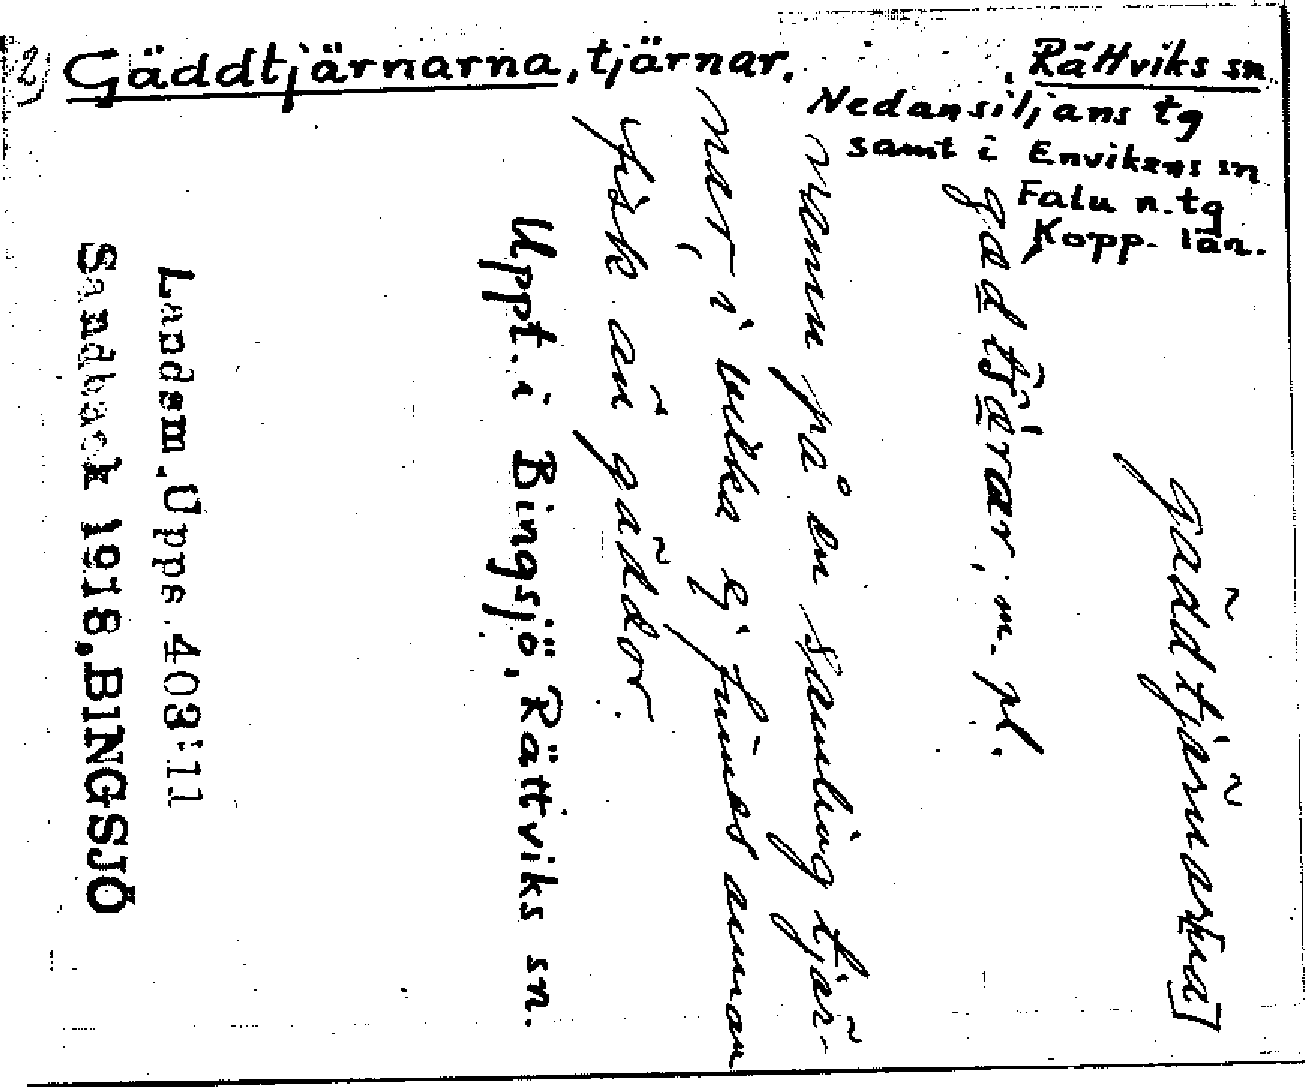 2) Gäddtjärnarna, tjärnar. Rättviks sn
Nedansiljans tg
samt i Envikens sn
Falu n. tg
Kopp. län.
gäddtjärnar[na]
m. pl.
namn på en samling tjär-
nar, i vilka ej finnes annan
fisk än gäddor.
Uppt. i Bingsjö, Rättviks sn.
Landsm. Upps. 403:11
Sandback 1918, BINGSJÖ